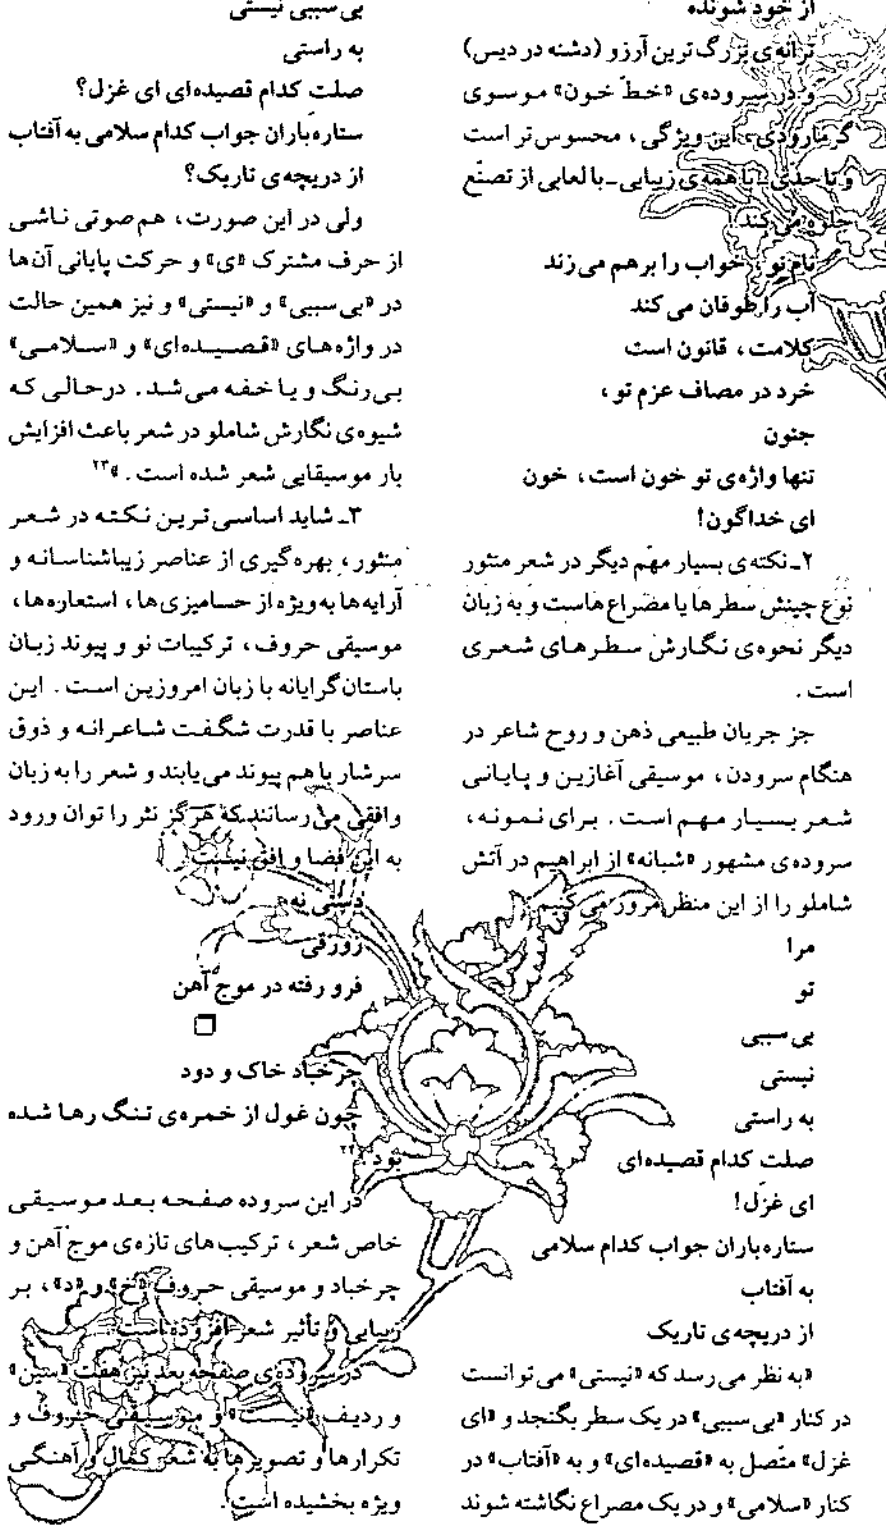 از خود شونده
ترانه‌ی بزرگ ترین آرزو (دشنه در دیس)
و در سروده‌ی «خطّ خون» موسوی
گرمارودی، این ویژگی، محسوس تر است
و تا حدّی ـ با همه‌ی زیبایی ـ با لعابی از تصنّع
جلوه می کند!
نام تو، خواب را برهم می زند
آب را طوفان می کند
کلامت، قانون است
خرد در مصاف عزم تو،
جنون
تنها واژه‌ی تو خون است، خون
ای خداگون!
۲ـ نکته‌ی بسیار مهّم دیگر در شعر منثور
نوع چینش سطرها یا مصراع هاست و به زبان
دیگر نحوه‌ی نگارش سطرهای شعری
است.
جز جریان طبیعی ذهن و روح شاعر در
هنگام سرودن، موسیقی آغازین و پایانی
شعر بسیار مهم است. برای نمونه،
سروده‌ی مشهور «شبانه» از ابراهیم در آتش
شاملو را از این منظر مرور می کنیم:
مرا
تو
بی سببی
نیستی
به راستی
صلت کدام قصیده‌ای
ای غزل!
ستاره‌باران جواب کدام سلامی
به آفتاب
از دریچه‌ی تاریک
«به نظر می رسد که «نیستی» می توانست
در کنار «بی سببی» در یک سطر بگنجد و «ای
غزل» متّصل به «قصیده‌ای» و به «آفتاب» در
کنار «سلامی» و در یک مصراع نگاشته شوند
بی سببی نیستی
به راستی
صلت کدام قصیده‌ای ای غزل؟
ستاره‌باران جواب کدام سلامی به آفتاب
از دریچه‌ی تاریک؟
ولی در این صورت، هم صوتی ناشی
از حرف مشترک «ی» و حرکت پایانی آن‌ها
در «بی سببی» و «نیستی» و نیز همین حالت
در واژه‌های «قصیده‌ای» و «سلامی»
بی‌رنگ و یا خفه می‌شد. درحالی که
شیوه‌ی نگارش شاملو در شعر باعث افزایش
بار موسیقایی شعر شده است.»۲۳
۳ـ شاید اساسی ترین نکته در شعر
منثور، بهره گیری از عناصر زیباشناسانه و
آرایه‌ها به‌ویژه از حسامیزی‌ها، استعاره‌ها،
موسیقی حروف، ترکیبات نو و پیوند زبان
باستان‌گرایانه با زبان امروزین است. این
عناصر با قدرت شگفت شاعرانه و ذوق
سرشار با هم پیوند می‌یابند و شعر را به زبان
وافقی می رسانند که هرگز نثر را توان ورود
به این فضا و افق نیست.
دستی نه
زورقی
فرو رفته در موج آهن
چرخباد خاک و دود
چون غول از خمره‌ی تنگ رها شده
بود.۲۴
در این سروده صفحه بعد موسیقی
خاص شعر، ترکیب های تازه‌ی موج آهن و
چرخباد و موسیقی حروف «خ» و «د»، بر
زیبایی و تأثیر شعر افزوده است.
در سروده‌ی صفحه بعد نیز هفت «سین»
و ردیف «نیست» و موسیقی حروف و
تکرارها و تصویرها به شعر کمال و آهنگی
ویژه بخشیده است.